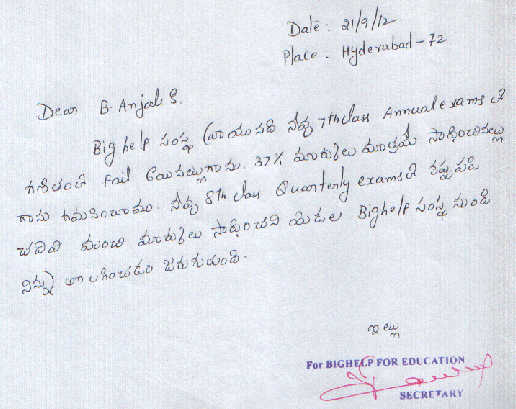 Date: 21/9/12
Place. Hyderabad-72
Dear B. Anjali S.
Big help సంస్థ వ్రాయునది నీవు 7th class Annual exams లో
గణితంలో fail అయినట్లుగాను. 37% మార్కులు మాత్రమే సాధించినట్లు
గాను గమనించాము. నీవు 8th class Quarterly exams లో కష్టపడి
చదివి మంచి మార్కులు సాధించని యెడల Bighelp సంస్థ నుండి
నిన్ను తొలగించడం జరుగుతుంది.
ఇట్లు
For BIGHELP FOR EDUCATION
SECRETARY